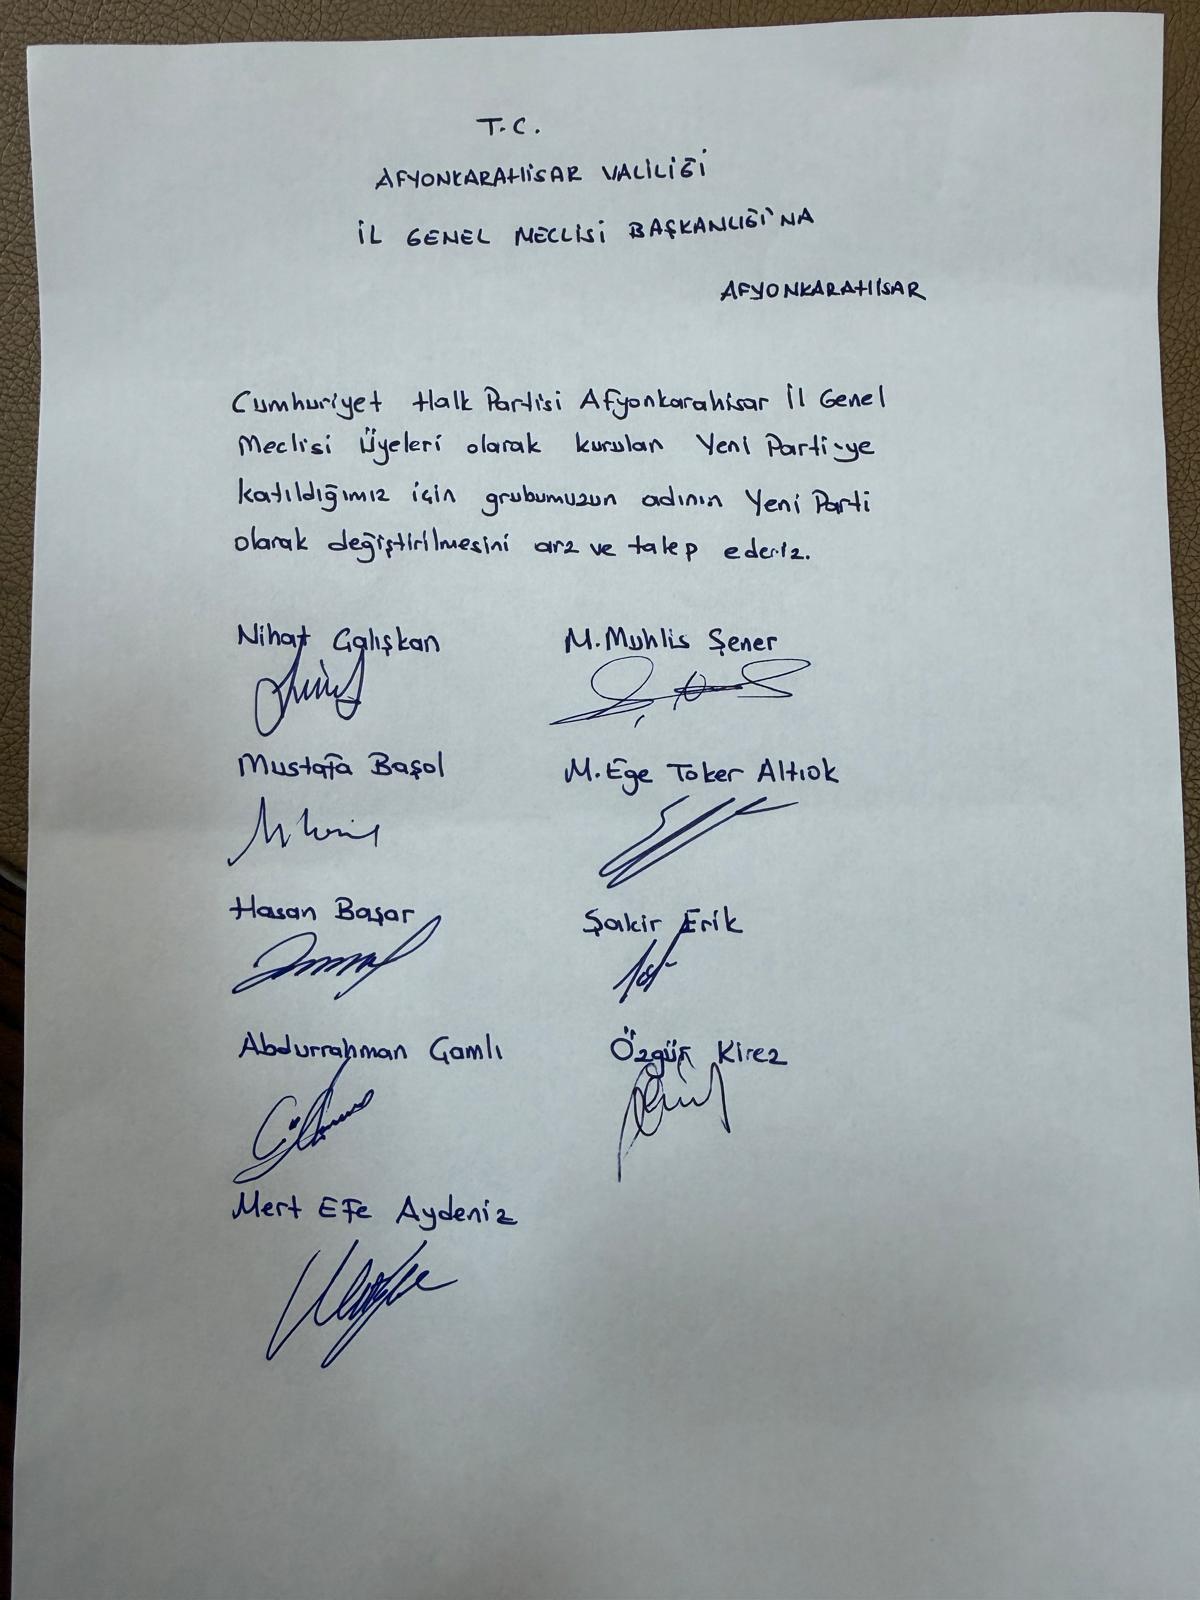 T.C.
AFYONKARAHİSAR VALİLİĞİ
İL GENEL MECLİSİ BAŞKANLIĞI'NA
AFYONKARAHİSAR
Cumhuriyet Halk Partisi Afyonkarahisar İl Genel
Meclisi Üyeleri olarak kurulan Yeni Parti-ye
katıldığımız için grubumuzun adının Yeni Parti
olarak değiştirilmesini arz ve talep ederiz.
Nihat Çalışkan M. Muhlis Şener
Mustafa Başol M. Ege Toker Altıok
Hasan Başar Şakir Erik
Abdurrahman Çamlı Özgür Kirez
Mert Efe Aydeniz